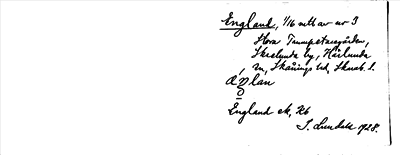 England, 1/16 mtl av nr 3
Stora Trumpetaregården,
Skarlunda by, Härlunda
sn, Skånings hd, Skarab. l.
England ek, Hb
S. Lundahl 1928.